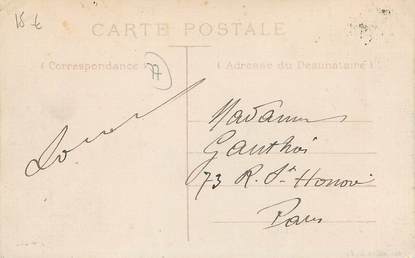 15 €
CARTE POSTALE
( Correspondance )
77
( Adresse du Destinataire )
Madame
Gauthois
73 R. St Honoré
Paris